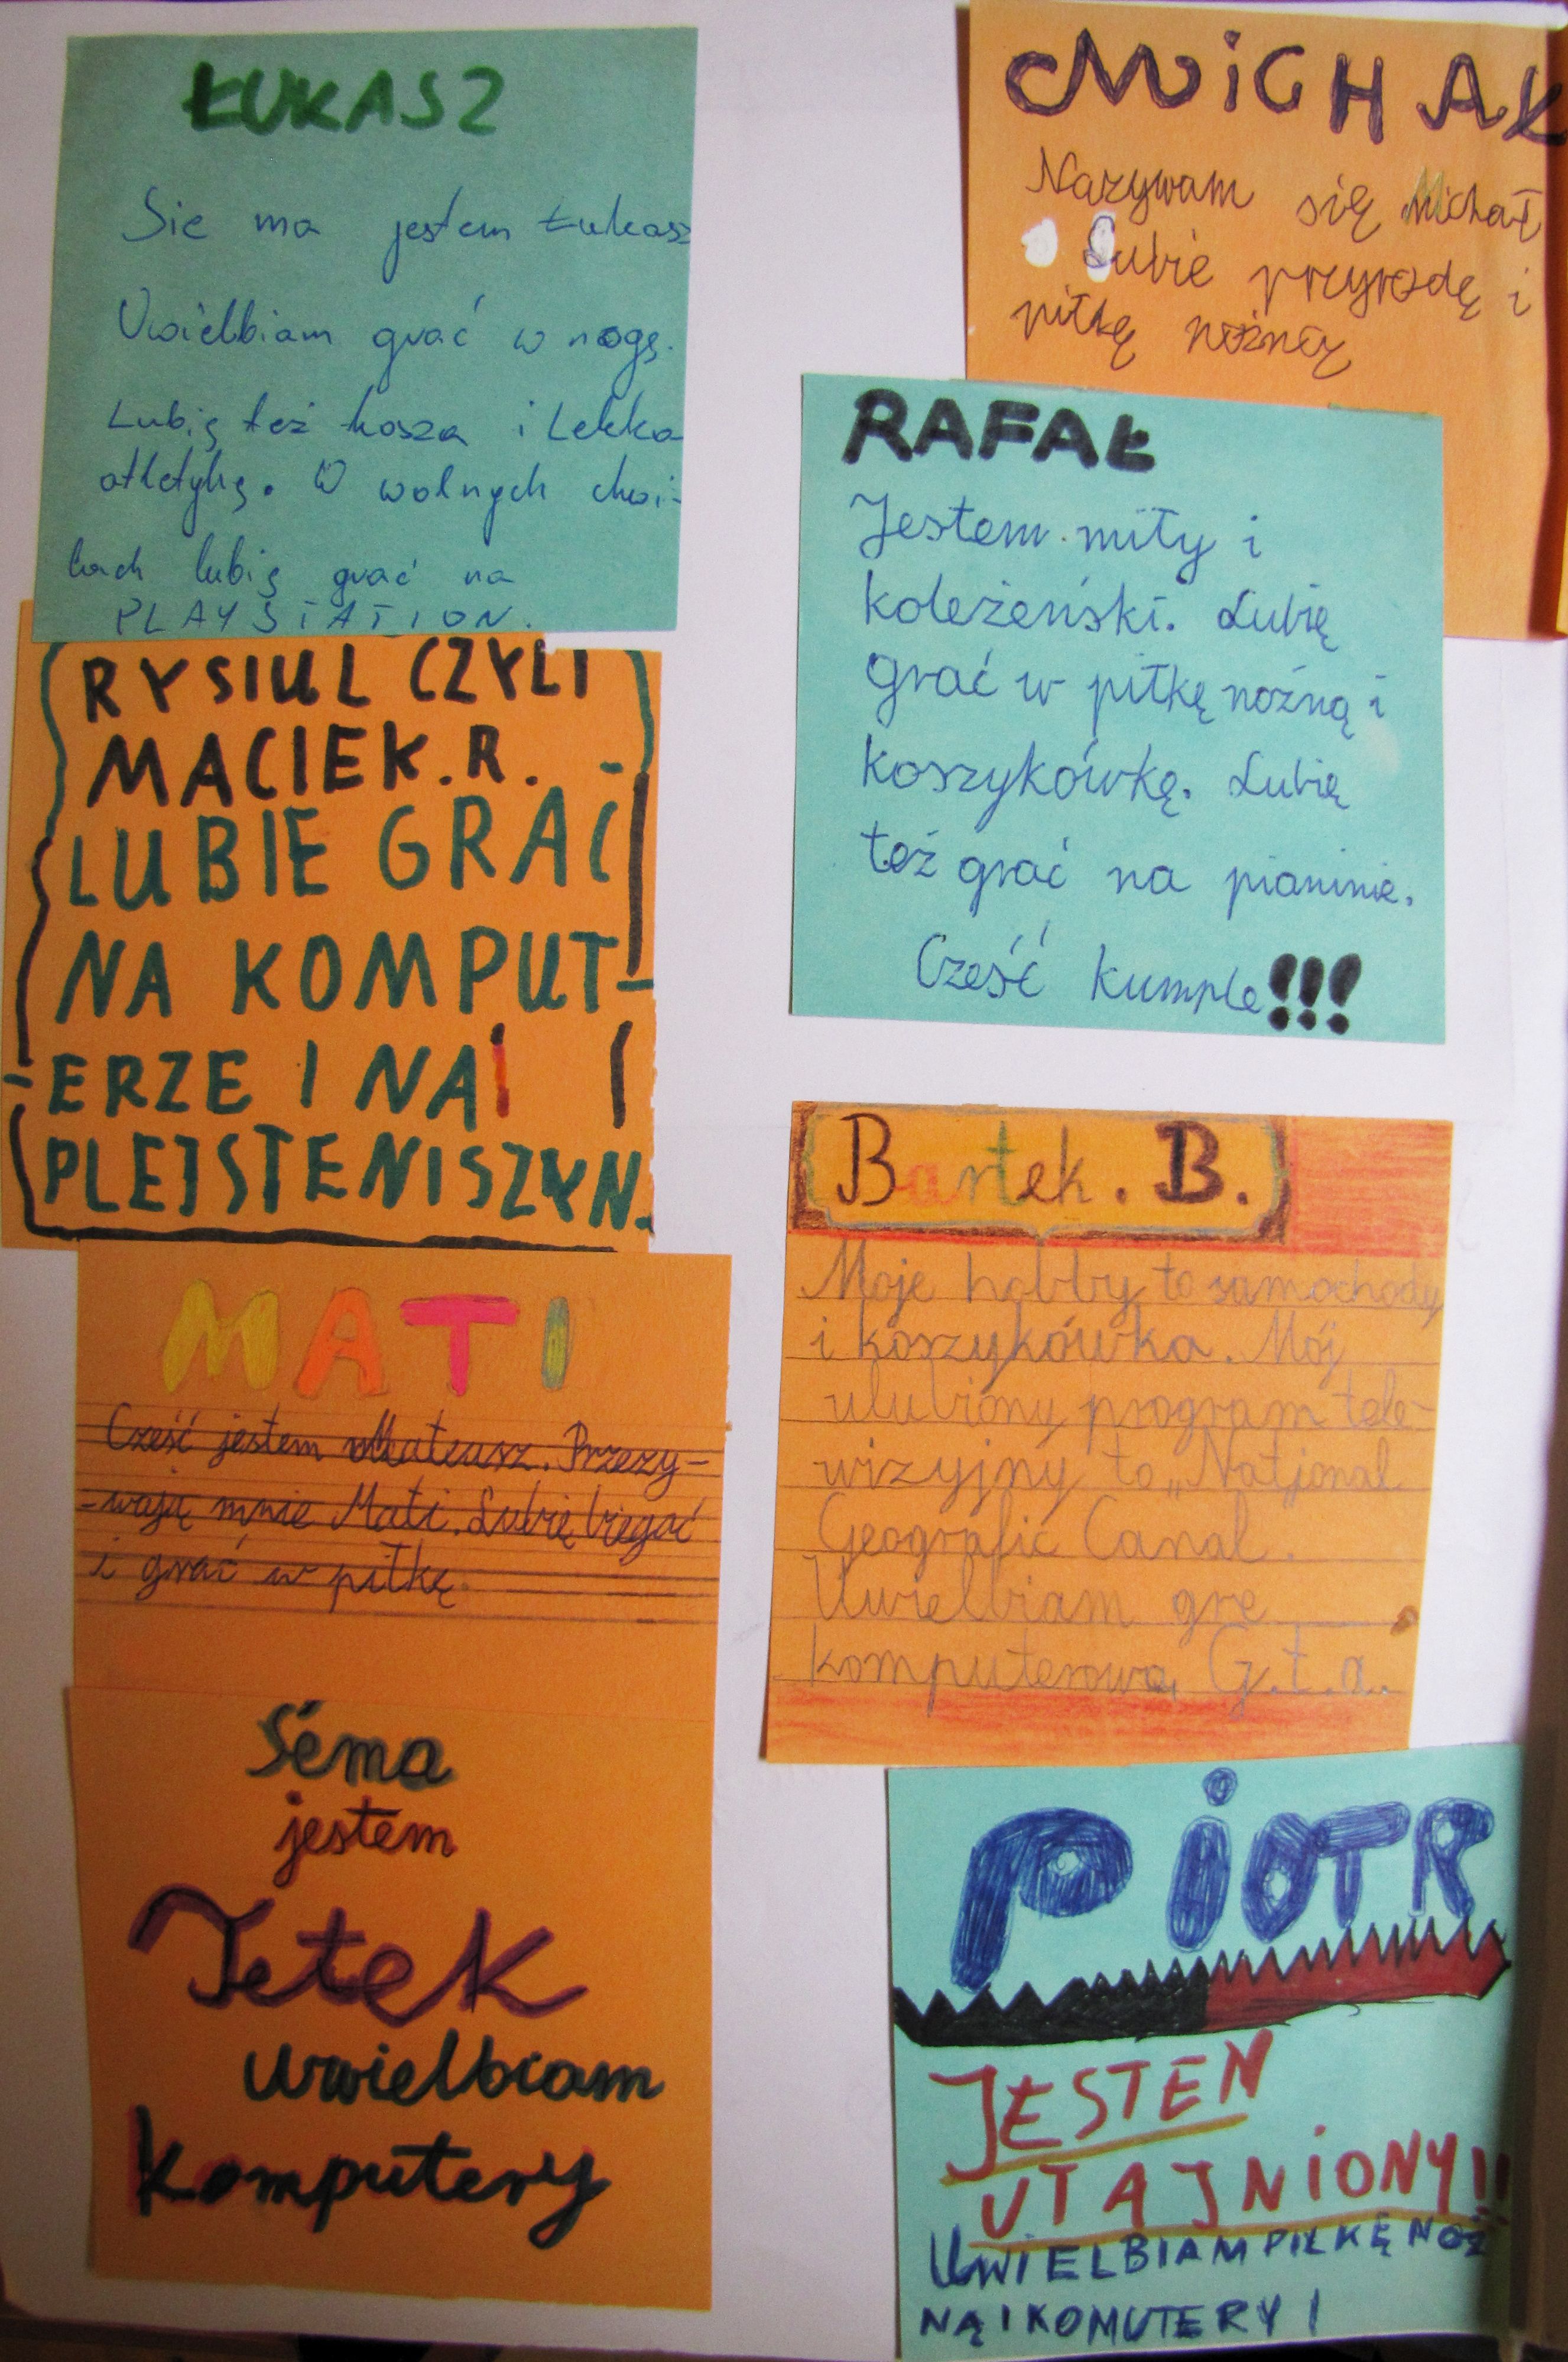 ŁUKASZ
Sie ma jestem Łukasz
Uwielbiam grać w nogę.
Lubię też kosza i Lekka
atletykę. W wolnych chwi-
lach lubię grać na
PLAYSTATION.
RYSIUL CZYLI
MACIEK.R.
LUBIE GRAĆ
NA KOMPUT-
ERZE I NA
PLEJSTENISZYN.
MATI
Cześć jestem Mateusz. Przezy-
-wają mnie Mati. Lubię biegać
i grać w piłkę.
Séma
jestem
Jetek
uwielbiam
Komputery
MiCHAŁ
Nazywam się Michał
Lubie przyrodę i
piłkę nożną
RAFAŁ
Jestem miły i
koleżeński. Lubię
grać w piłkę nożną i
koszykówkę. Lubię
też grać na pianinie.
Cześć kumple!!!
Bartek. B.
Moje hobby to samochody
i koszykówka. Mój
ulubiony program tele-
wizyjny to „National
Geografic Canal.
Uwielbiam grę
komputerową G.t.a.
PiOTR
JESTEN
UTAJNiONY!!
UWiELBIAM PIŁKĘ NOŻ
NĄ I KOMUTERY I